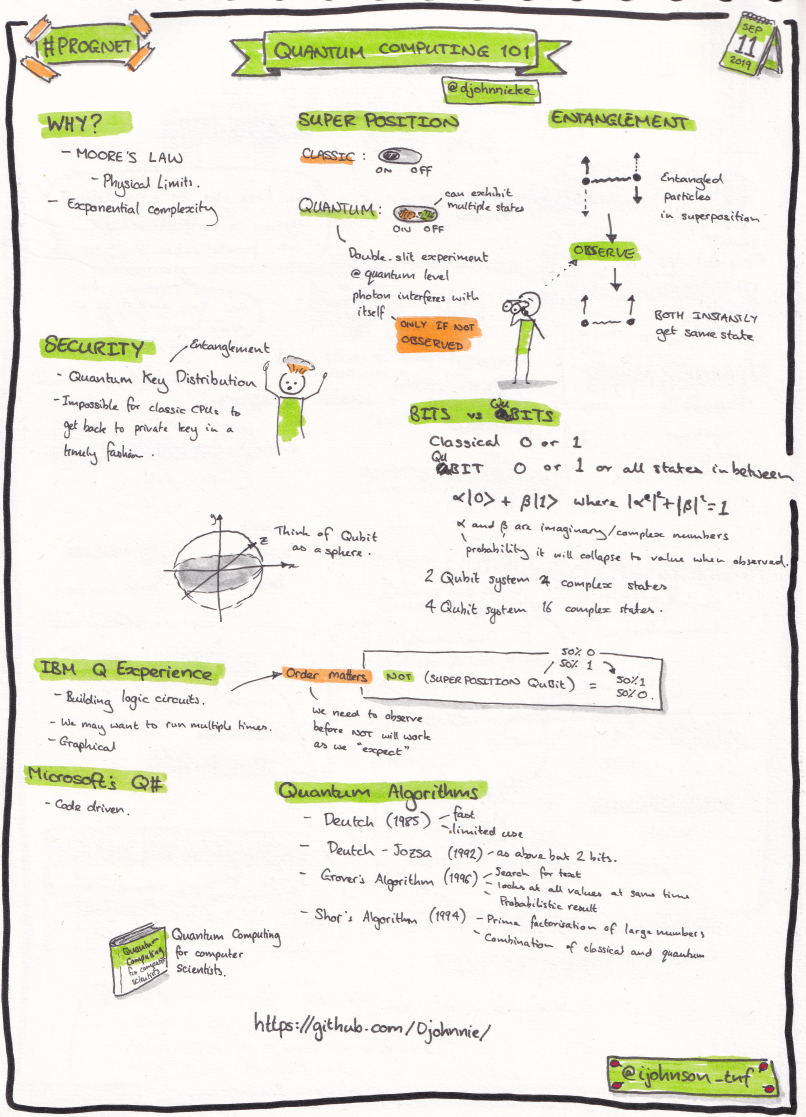 #PROGNET
QUANTUM COMPUTING 101
SEP
11
2019
@djohnnieke
WHY?
- MOORE'S LAW
- Physical Limits.
- Exponential complexity
SUPER POSITION
CLASSIC :
ON OFF
QUANTUM :
can exhibit
multiple states
ON OFF
Double-slit experiment
@ quantum level
photon interferes with
itself
ONLY IF NOT
OBSERVED
ENTANGLEMENT
Entangled
particles
in superposition
OBSERVE
BOTH INSTANTLY
get same state
SECURITY
Entanglement
- Quantum Key Distribution
- Impossible for classic CPUs to
get back to private key in a
timely fashion.
BITS vs QuBITS
Classical 0 or 1
QuBIT 0 or 1 or all states in between
α|0> + β|1> where |α²|² + |β|² = 1
α and β are imaginary/complex numbers
probability it will collapse to value when observed.
2 Qubit system 4 complex states
4 Qubit system 16 complex states.
y
z
x
Think of Qubit
as a sphere.
IBM Q Experience
- Building logic circuits.
- We may want to run multiple times.
- Graphical
Order matters
we need to observe
before NOT will work
as we "expect"
50% 0
50% 1
NOT (SUPERPOSITION QuBIT) =
50% 1
50% 0.
Microsoft's Q#
- Code driven.
Quantum Algorithms
- Deutch (1985) - fast
- limited use
- Deutch - Jozsa (1992) - as above but 2 bits.
- Grover's Algorithm (1996) - Search for text
- looks at all values at same time
- Probabilistic result
- Shor's Algorithm (1994) - Prime factorisation of large numbers
- Combination of classical and quantum
Quantum
Computing
for computer
scientists
Quantum Computing
for computer
scientists.
https://github.com/Djohnnie/
@ijohnson_tnf